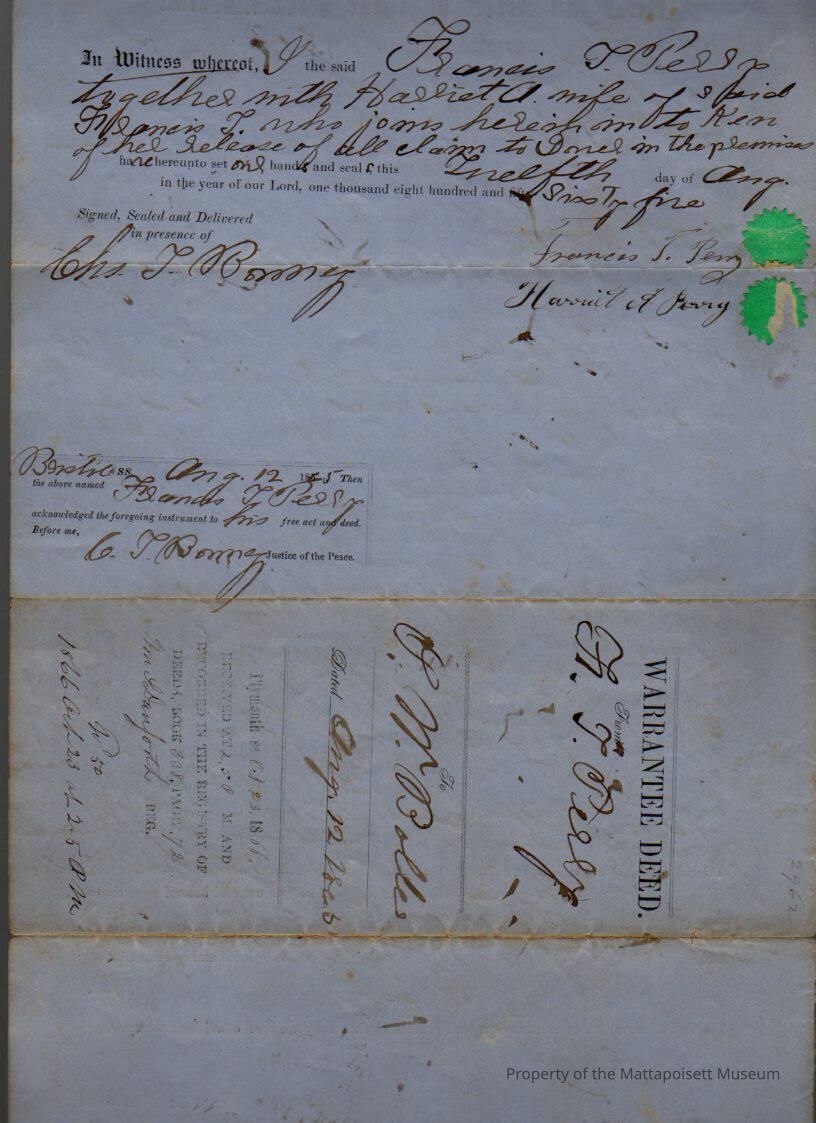 In Witness whereof, I the said Francis T. Perry
together with Harriet A. wife of said
Francis T. who joins herein in token
of her release of all claim to Dower in the premises
have hereunto set our hands and seals, this Twelfth day of Aug.
in the year of our Lord, one thousand eight hundred and sixty five
Signed, Sealed and Delivered
in presence of
Chs. T. Bonney
Francis T. Perry
Harriet A Perry
Bristol ss. Aug. 12 1865 Then
the above named Francis T. Perry
acknowledged the foregoing instrument to his free act and deed.
Before me,
C. T. Bonney Justice of the Peace.
WARRANTEE DEED.
From
F. T. Perry
To
W. Bolles
Dated Aug. 12 1865
Plymouth ss Oct 23. 1866.
RECEIVED AT 2, 50 M AND
RECORDED IN THE REGISTRY OF
DEEDS, BOOK 338, PAGE 72
Wm S Danforth REG.
1866 Oct. 23
2962
Property of the Mattapoisett Museum